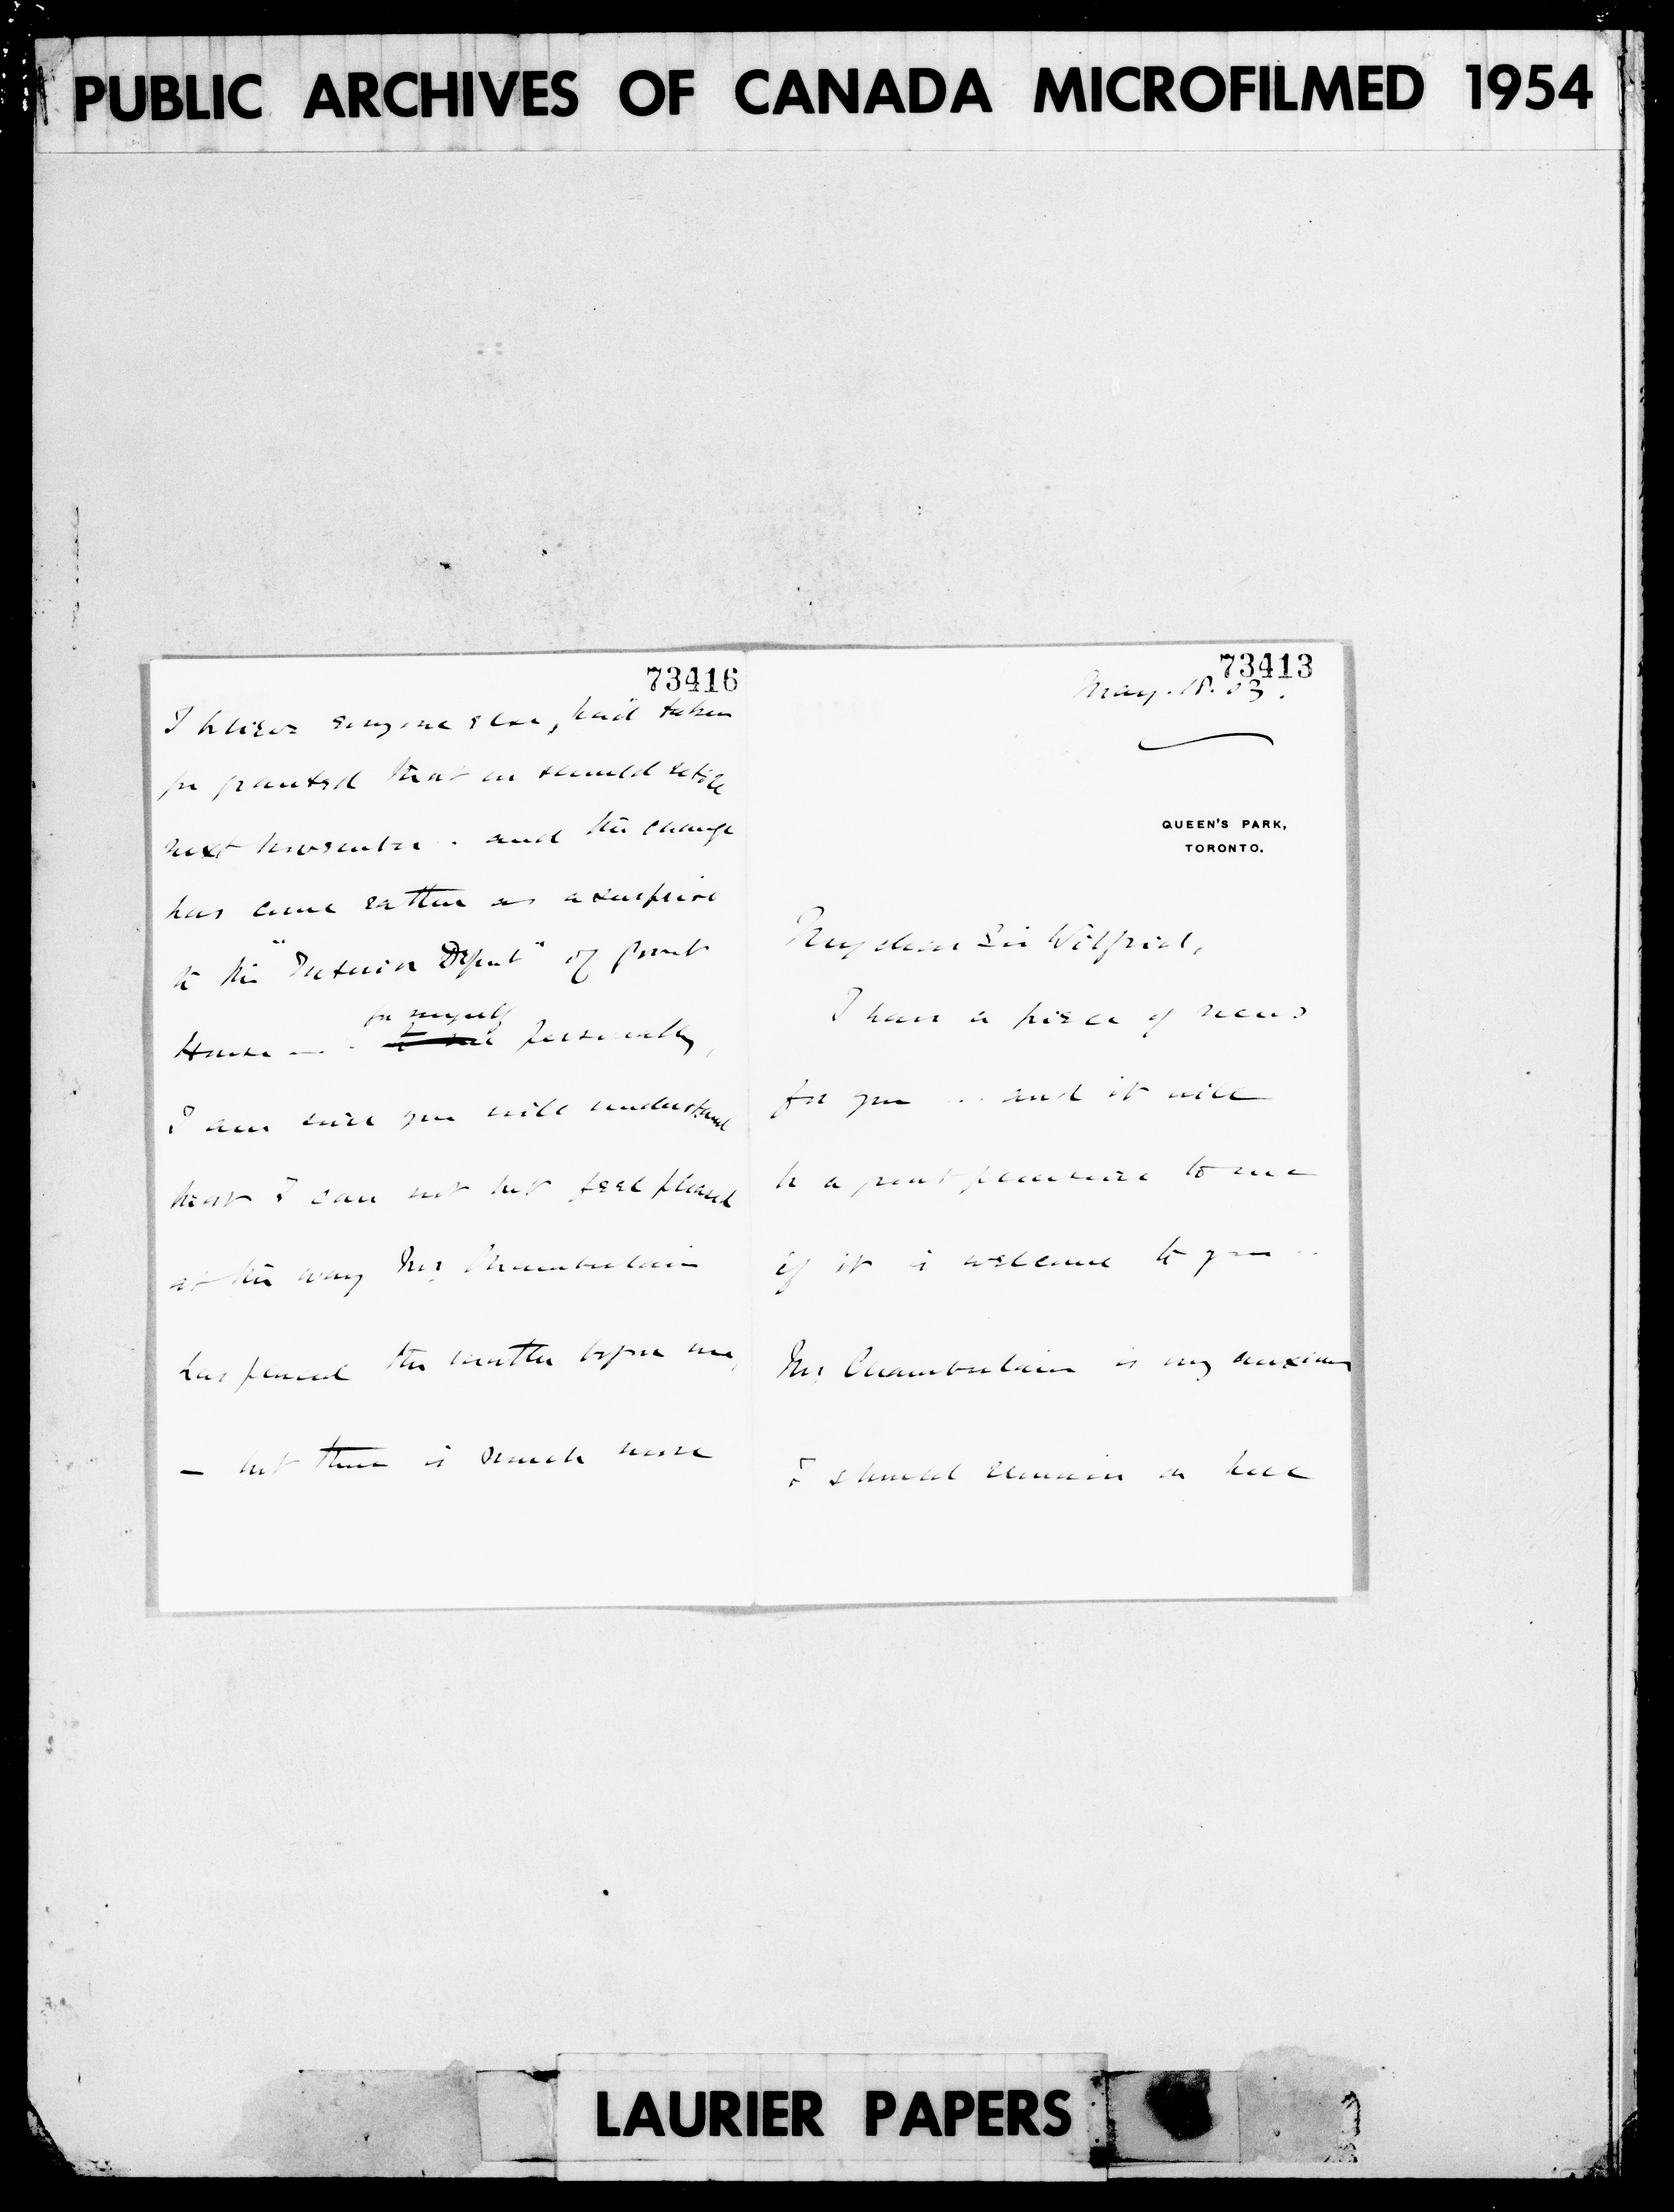 PUBLIC ARCHIVES OF CANADA MICROFILMED 1954
73416
I believe everyone else, had taken
for granted that we should retire
next November . and the change
has come rather as a surprise
to the "Interior Depart" of Govmt
House — . for myself personally,
I am sure you will understand
that I can not but feel pleased
at the way Mr Chamberlain
has placed the matter before me,
— but there is much more
73413
May. 18. 03.
QUEEN'S PARK,
TORONTO.
My dear Sir Wilfrid,
I have a piece of news
for you ... and it will
be a great pleasure to me
if it is welcome to you ..
Mr Chamberlain is very anxious
I should remain on here
LAURIER PAPERS